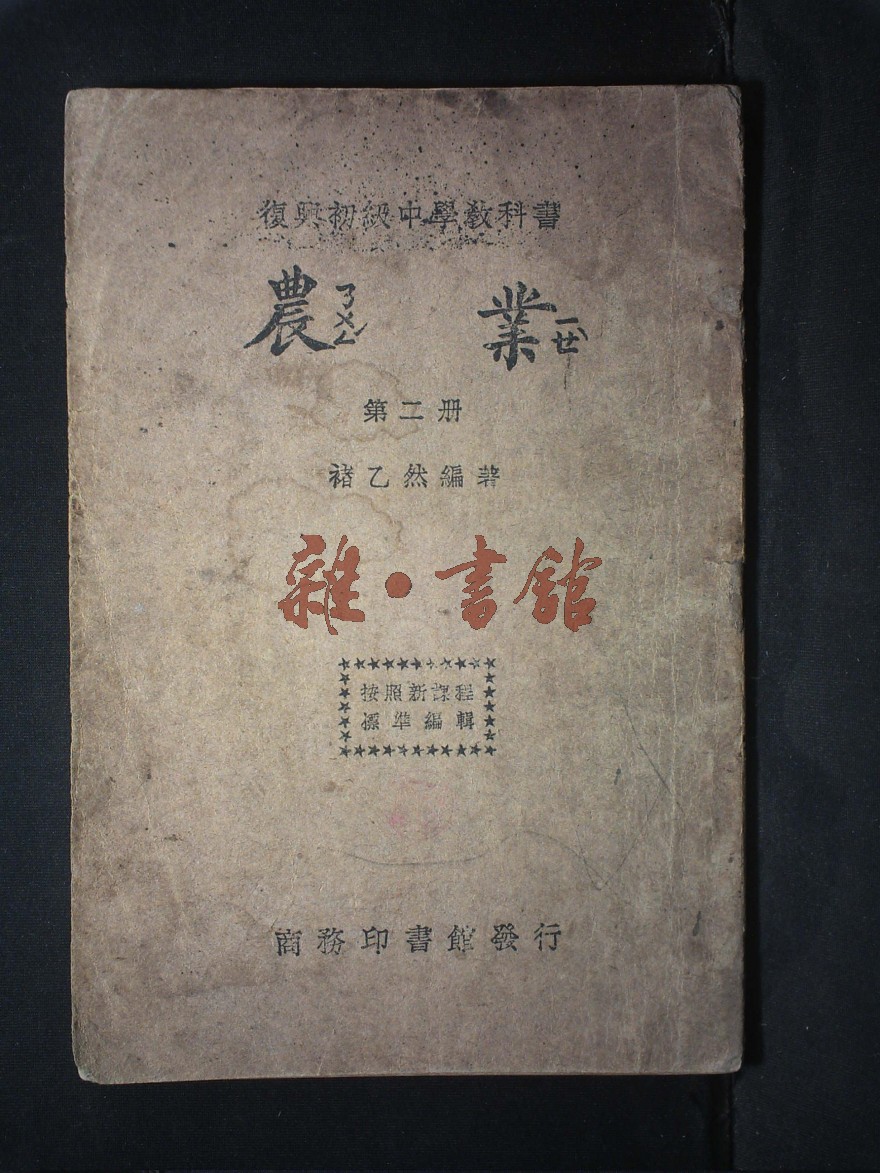 復興初級中學教科書
農ㄋㄨㄥˊ 業ㄧㄝˋ
第二册
褚乙然編著
雜·書館
按照新課程
標準編輯
商務印書館發行